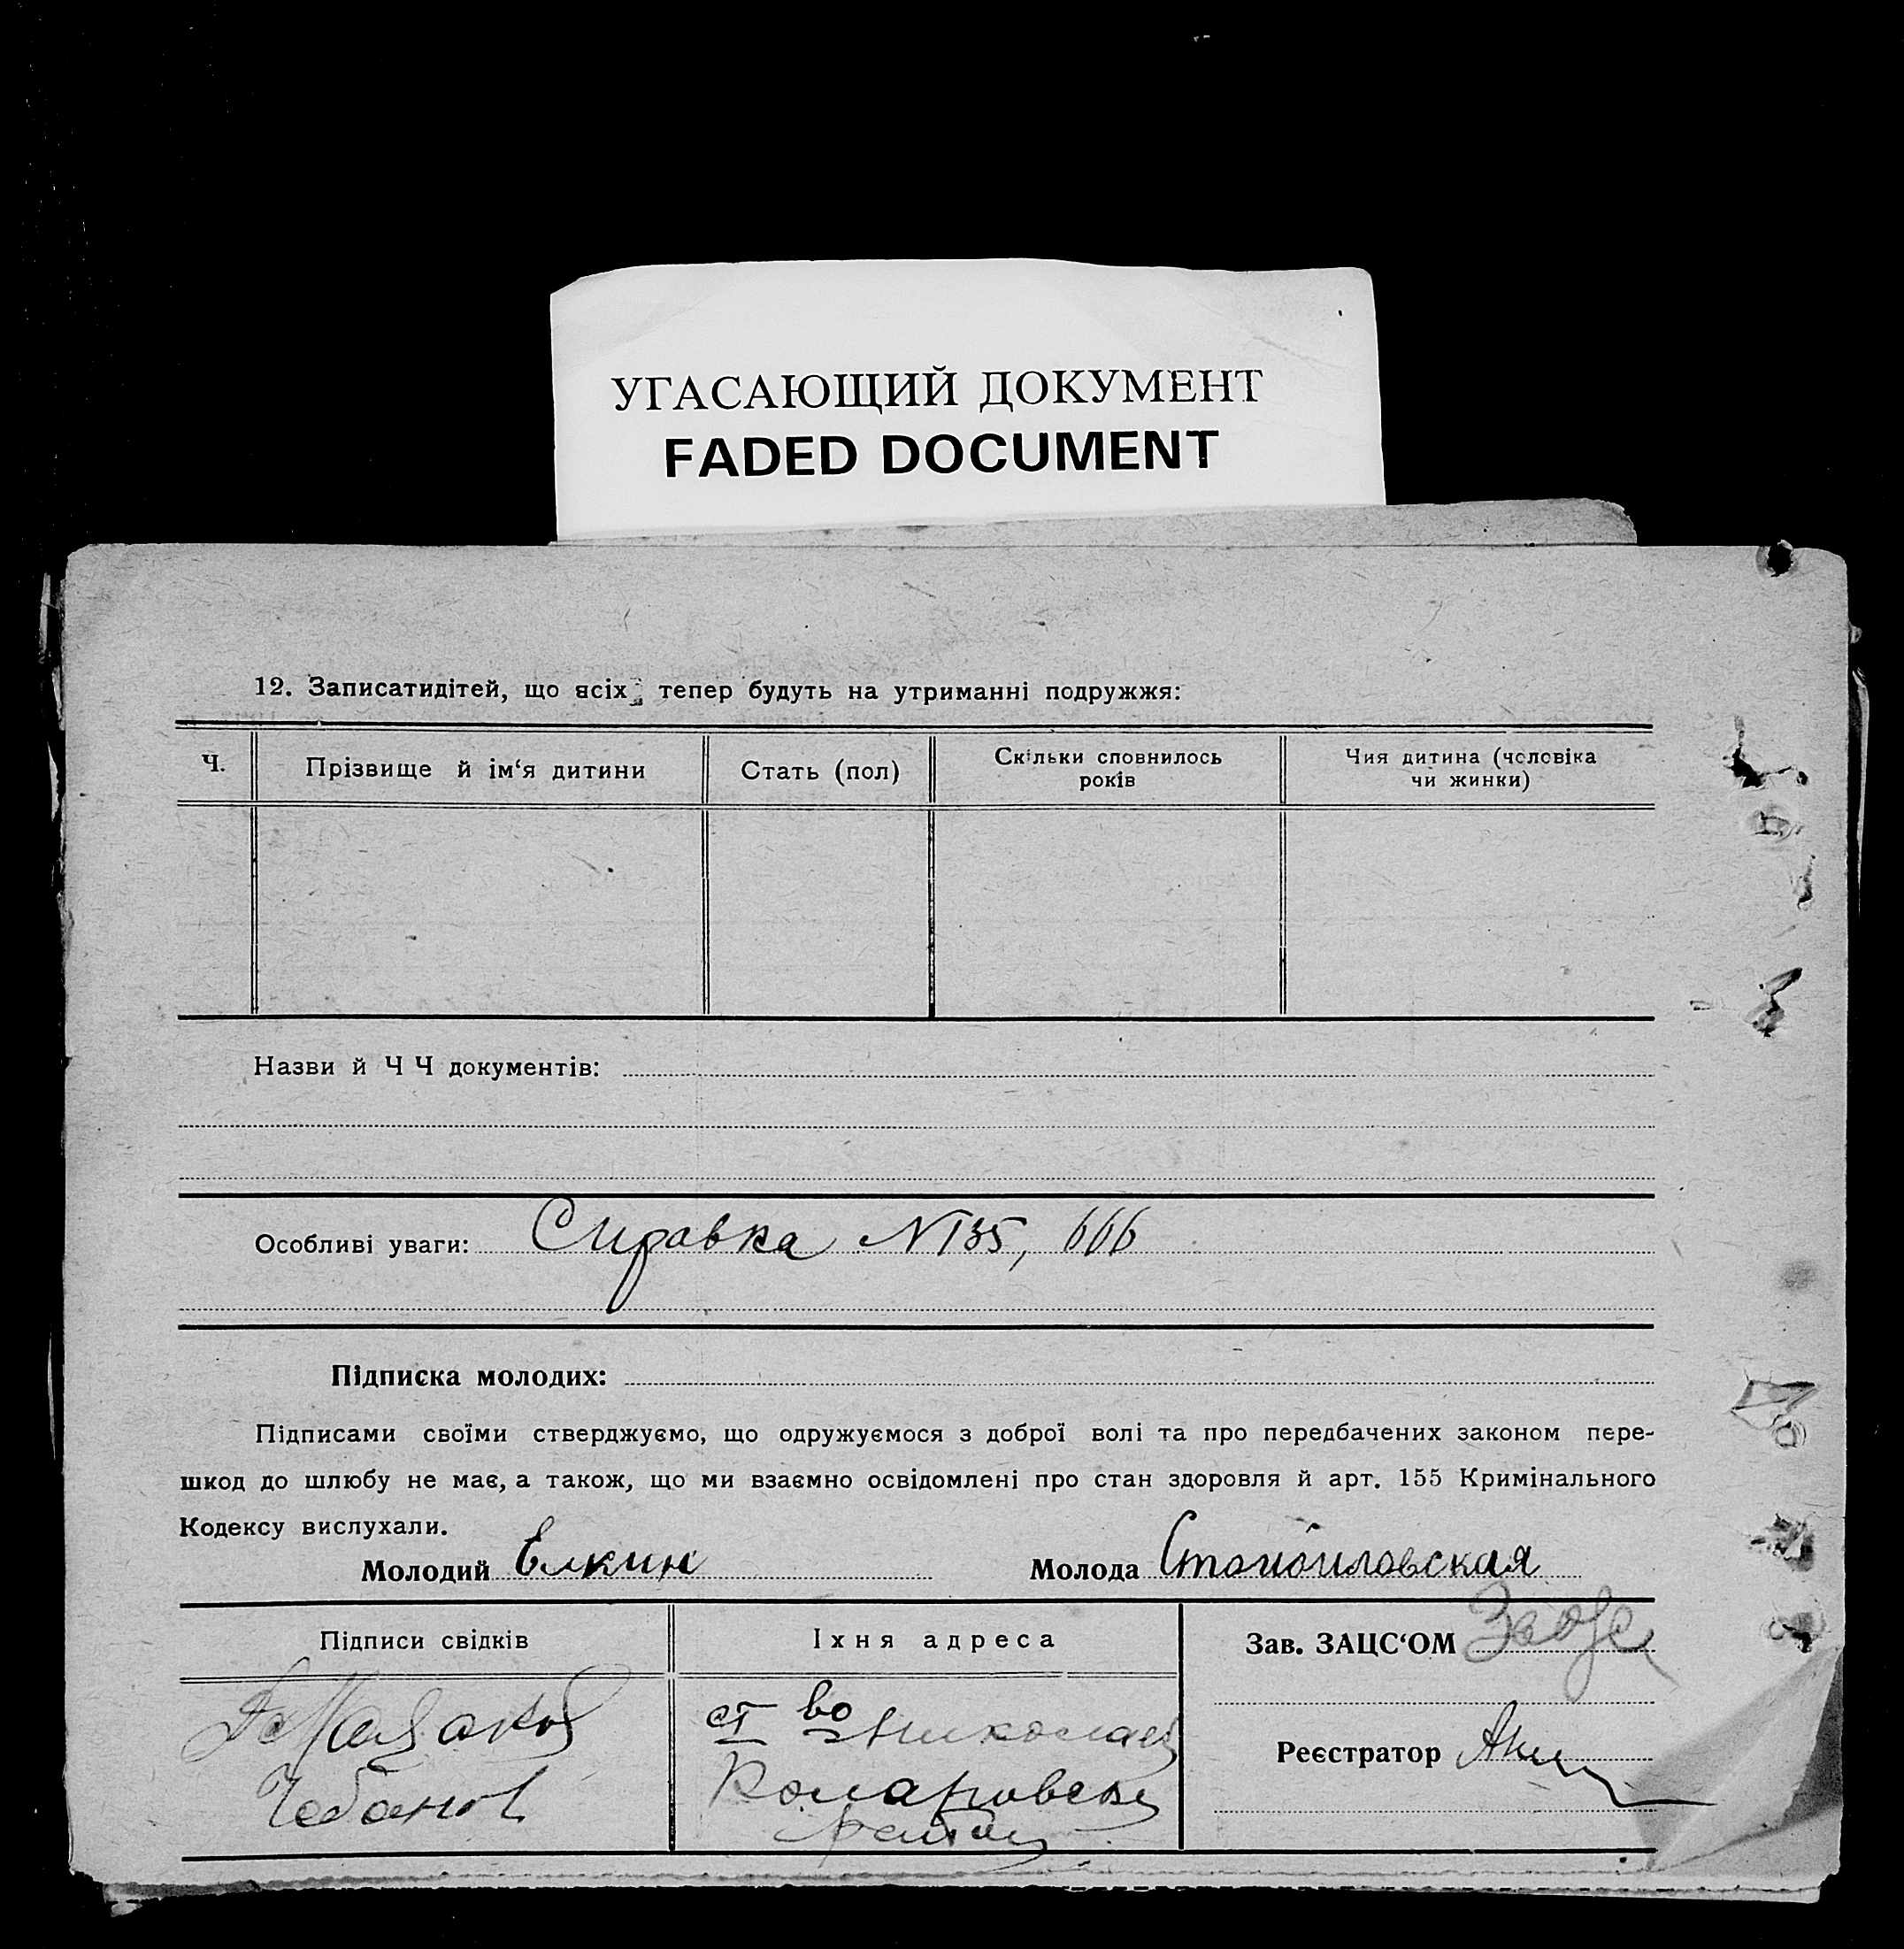 УГАСАЮЩИЙ ДОКУМЕНТ
FADED DOCUMENT
12. Записатидітей, що всіх тепер будуть на утриманні подружжя:
Ч.
Прізвище й ім‘я дитини
Стать (пол)
Скільки сповнилось
років
Чия дитина (чоловіка
чи жинки)
Назви й Ч Ч документів:
Особливі уваги: Справка N 135, 666
Підписка молодих:
Підписами своїми стверджуємо, що одружуємося з доброї волі та про передбачених законом пере-
шкод до шлюбу не має, а також, що ми взаємно освідомлені про стан здоровля й арт. 155 Кримінального
Кодексу вислухали.
Молодий Елкин
Молода
Підписи свідків
Їхня адреса
Зав. ЗАЦС‘ОМ
Чебанов
ст во
Реєстратор